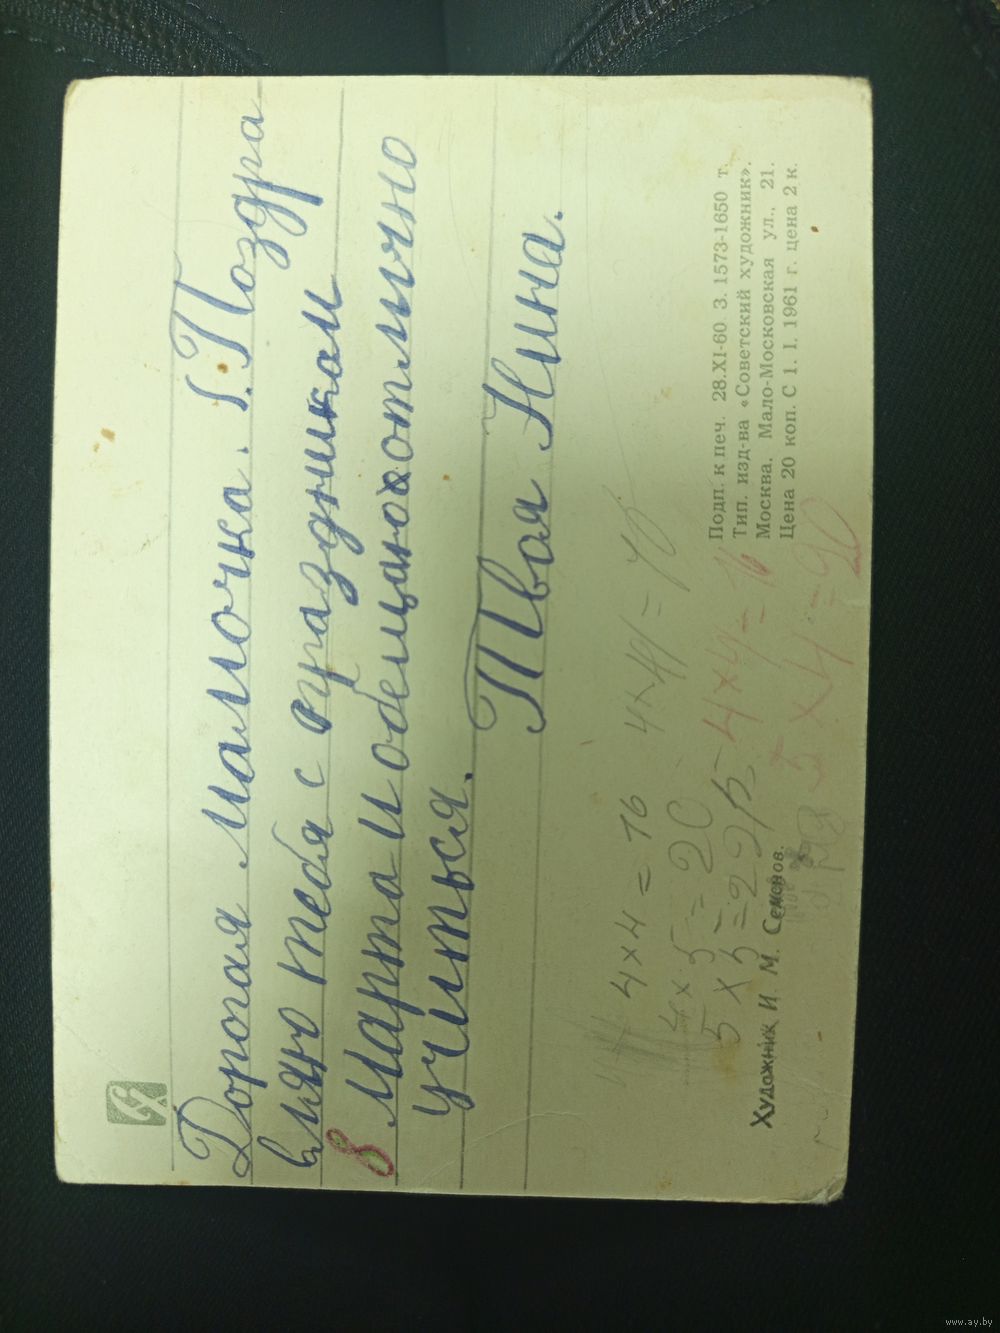 Дорогая мамочка. Г. Поздра
вляю тебя с праздником
8 марта и обещаю отлично
учиться.
Твоя Нина.
4 × 4 = 16
4 × 4 =
4 × 5 = 20
4 × 4 = 16
5 × 5 =
5 × 4 = 20
Художник И. М. Семенов.
Подп. к печ. 28.XI-60 З. 1573-1650 т.
Тип. изд-ва «Советский художник».
Москва. Мало-Московская ул., 21.
Цена 20 коп. С 1. I. 1961 г. цена 2 к.
www.ay.by